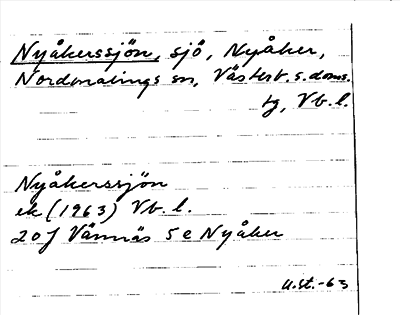 Nyåkerssjön, sjö, Nyåker,
Nordmalings sn, Västerb. s. doms.
tg, Vb. l.
Nyåkerssjön
ek (1963) Vb. l.
20J Vännäs 5 e Nyåker
U.St.-63